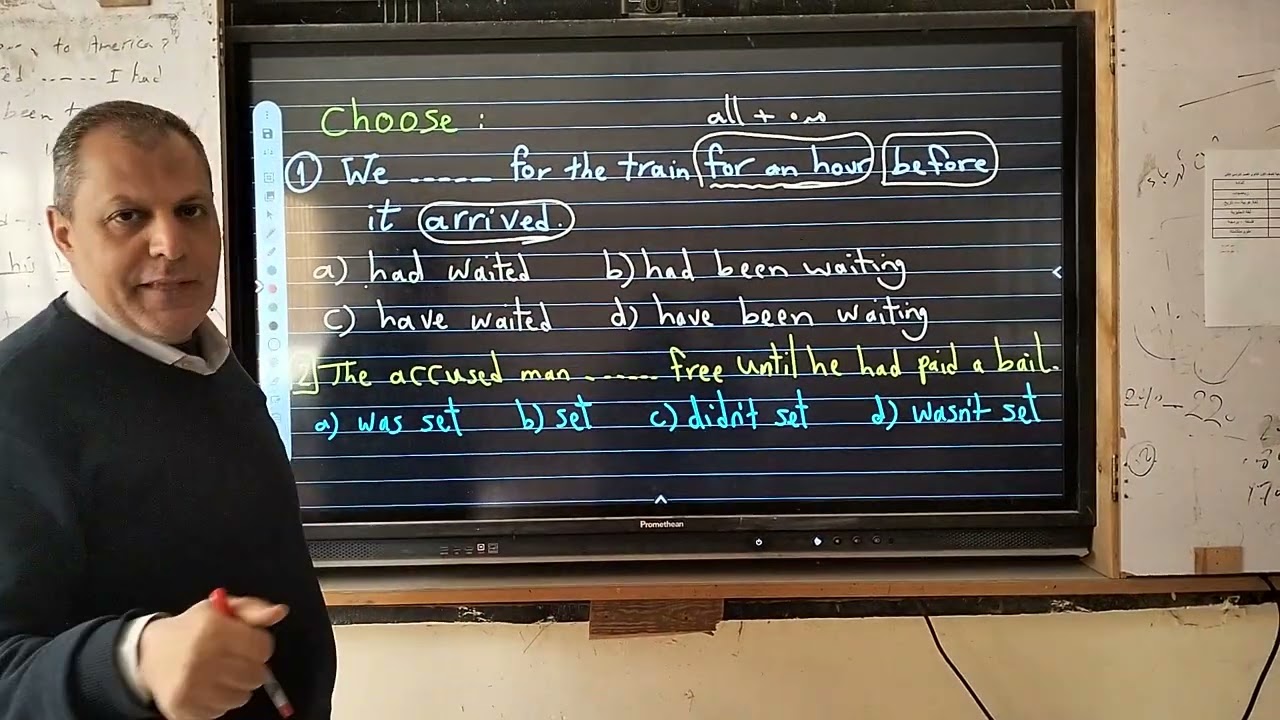 to America?
I had
been
his
Choose :
all + مدة
① We ------ for the train for an hour before
it arrived.
a) had waited b) had been waiting
c) have waited d) have been waiting
2 The accused man ------- free until he had paid a bail.
a) was set b) set c) didn't set d) wasn't set
Promethean